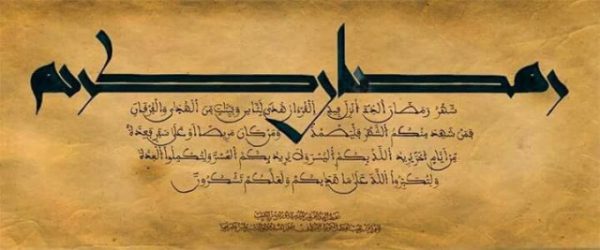 رمضان كريم
شهر رمضان الذي أنزل فيه القرءان هدى للناس وبينات من الهدى والفرقان
فمن شهد منكم الشهر فليصمه ومن كان مريضا أو على سفر فعدة
من أيام أخر يريد الله بكم اليسر ولا يريد بكم العسر ولتكملوا العدة
ولتكبروا الله على ما هداكم ولعلكم تشكرون